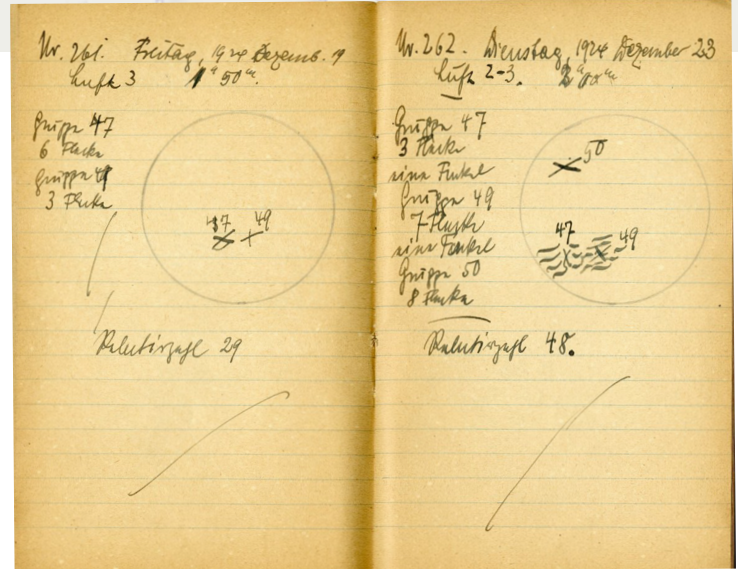 Nr. 261. Freitag, 1924 Dezemb. 19
Luft 3 1ᵘ 50ᵐ.
Gruppe 47
6 Flecke
Gruppe 49
3 Flecke
47 49
Relativzahl 29
Nr. 262. Dienstag, 1924 Dezember 23
Luft 2-3.
Gruppe 47
3 Flecke
eine Fackel
Gruppe 49
7 Flecke
eine Fackel
Gruppe 50
8 Flecke
50
47 49
Relativzahl 48.